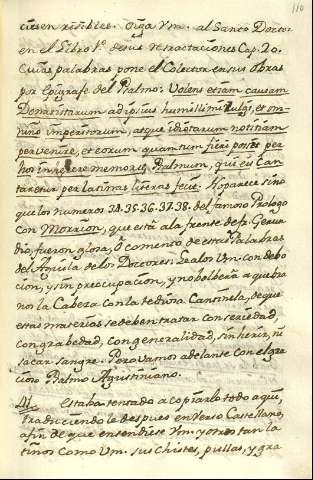 110
ciesen risibles. Oiga Vm. al Santo Doctor
en el Libro 1º de sus retractaciones Cap. 20.
Cuias palabras pone el Colector en sus obras
por Epigrafe del Psalmo: Volens etiam causam
Donatistarum ad ipsius humillimi vulgi, et om-
nino imperitorum, atque idiotarum notitiam
pervenire, et eorum quantum fieri posset per
nos inhærere memoriæ, Psalmum, qui eis can-
taretur per latinas literas feci. No parece sino
que los numeros 34. 35. 36. 37. 38. del famoso Prologo
con Morrion, que está a la frente de fr. Gerun-
dio, fueron glosa, ó comento de estas Palabras
del Aguila de los Doctores. Lealos Vm. con debo-
cion, y sin preocupacion, y no bolberá a quebra
nos la Cabeza con la tediosa Cantinela, de que
estas materias se deben tratar con seriedad,
con grabedad, con generalidad, sin herir, ni
sacar sangre. Pero vamos adelante con el gra-
cioso Psalmo Agustiniano.
41. Estaba tentado a copiarlo todo aqui,
traduciendole despues en verso Castellano,
afin de que entendiese Vm. y otros tan la
tinos como Vm. sus chistes, pullas, y gra